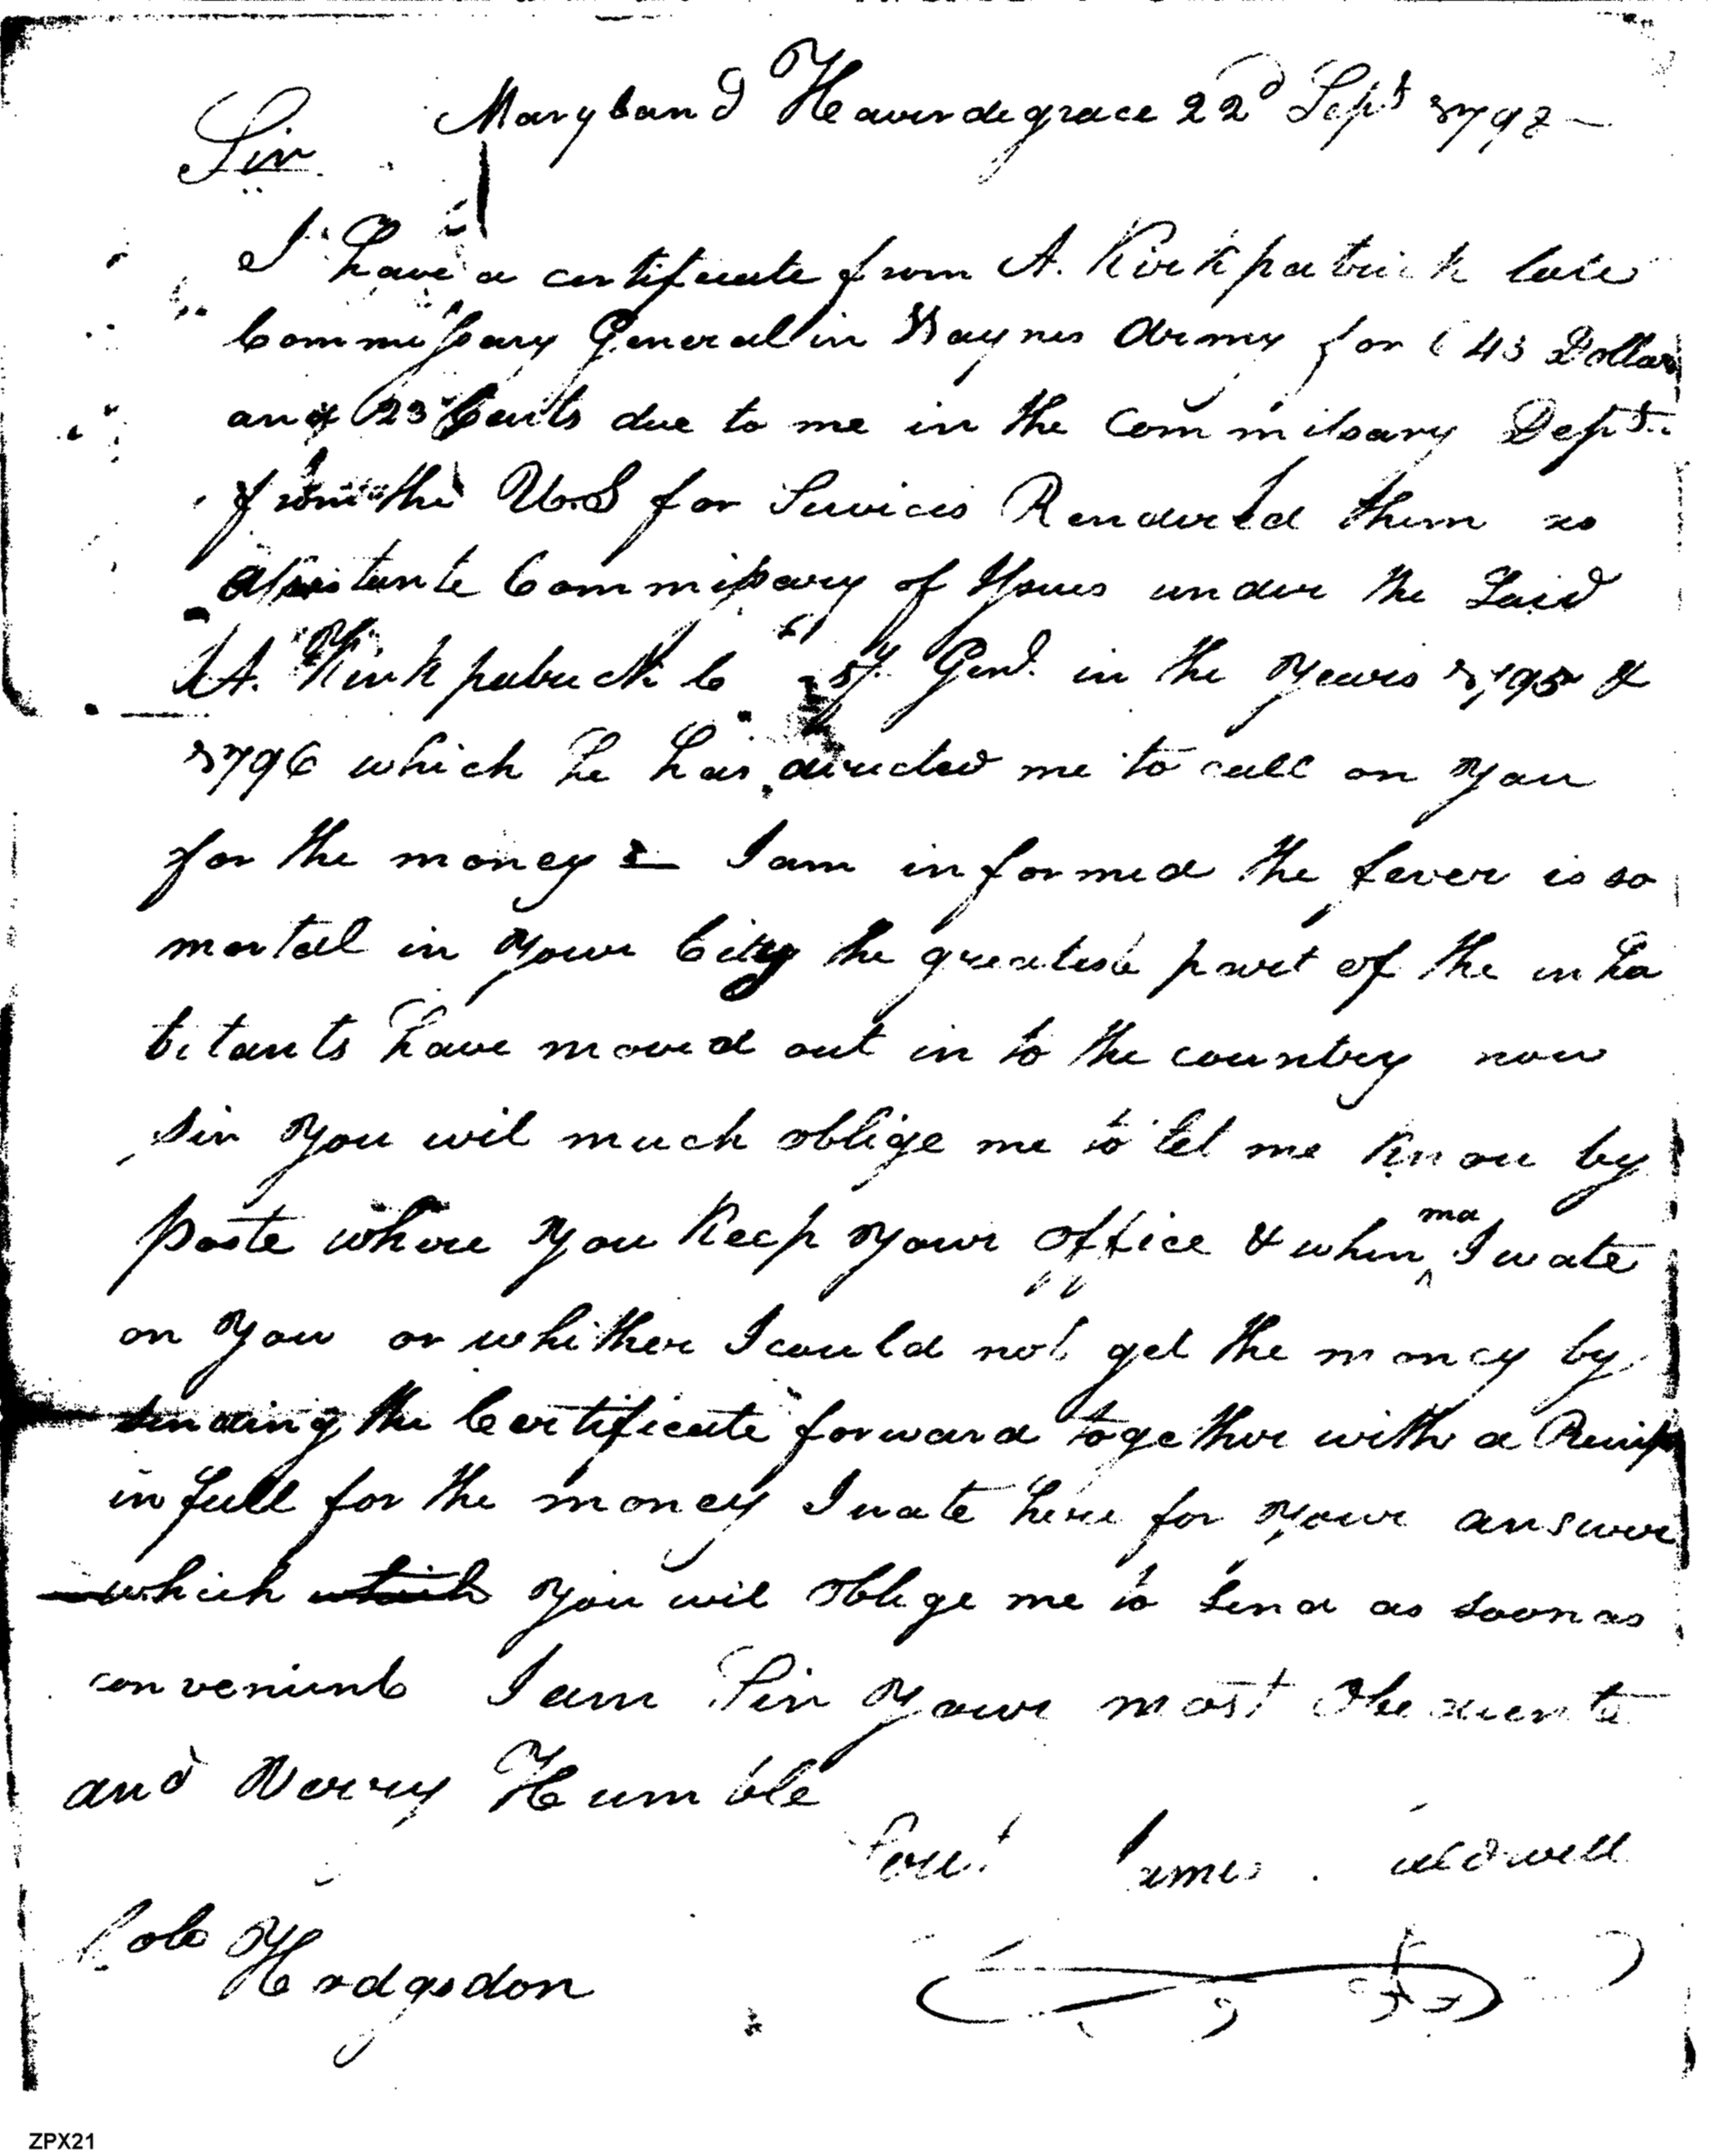 Maryland Haverdegrace 22d Sept 1797
Sir
I have a certificate from A. Kirkpatrick late
Commissary General in Waynes Army for 43 Dollar
and 23 Cents due to me in the Commissary Dept
from the U.S for Services Rendered them as
Assistante Commissary of Issues under the Said
A. Kirkpatrick Genl. in the years 1795 &
1796 which he has directed me to call on you
for the money I am informed the fever is so
mortal in your City the greateste part of the inha
bitants have moved out in to the country now
sir you wil much oblige me to let me know by
poste where you Keep your office & when ma I wate
on you or whither I could not get the money by
sending the Certificate forward together with a
in full for the money I wate here for your answer
which which you wil oblige me to send as soon as
convenient I am Sir your most Obediente
and Verry Humble
James
Hodgsdon
ZPX21